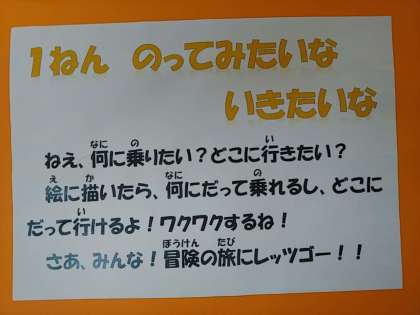 １ねん　のってみたいな
いきたいな
ねえ、何に乗りたい？どこに行きたい？
絵に描いたら、何にだって乗れるし、どこに
だって行けるよ！ワクワクするね！
さあ、みんな！冒険の旅にレッツゴー！！